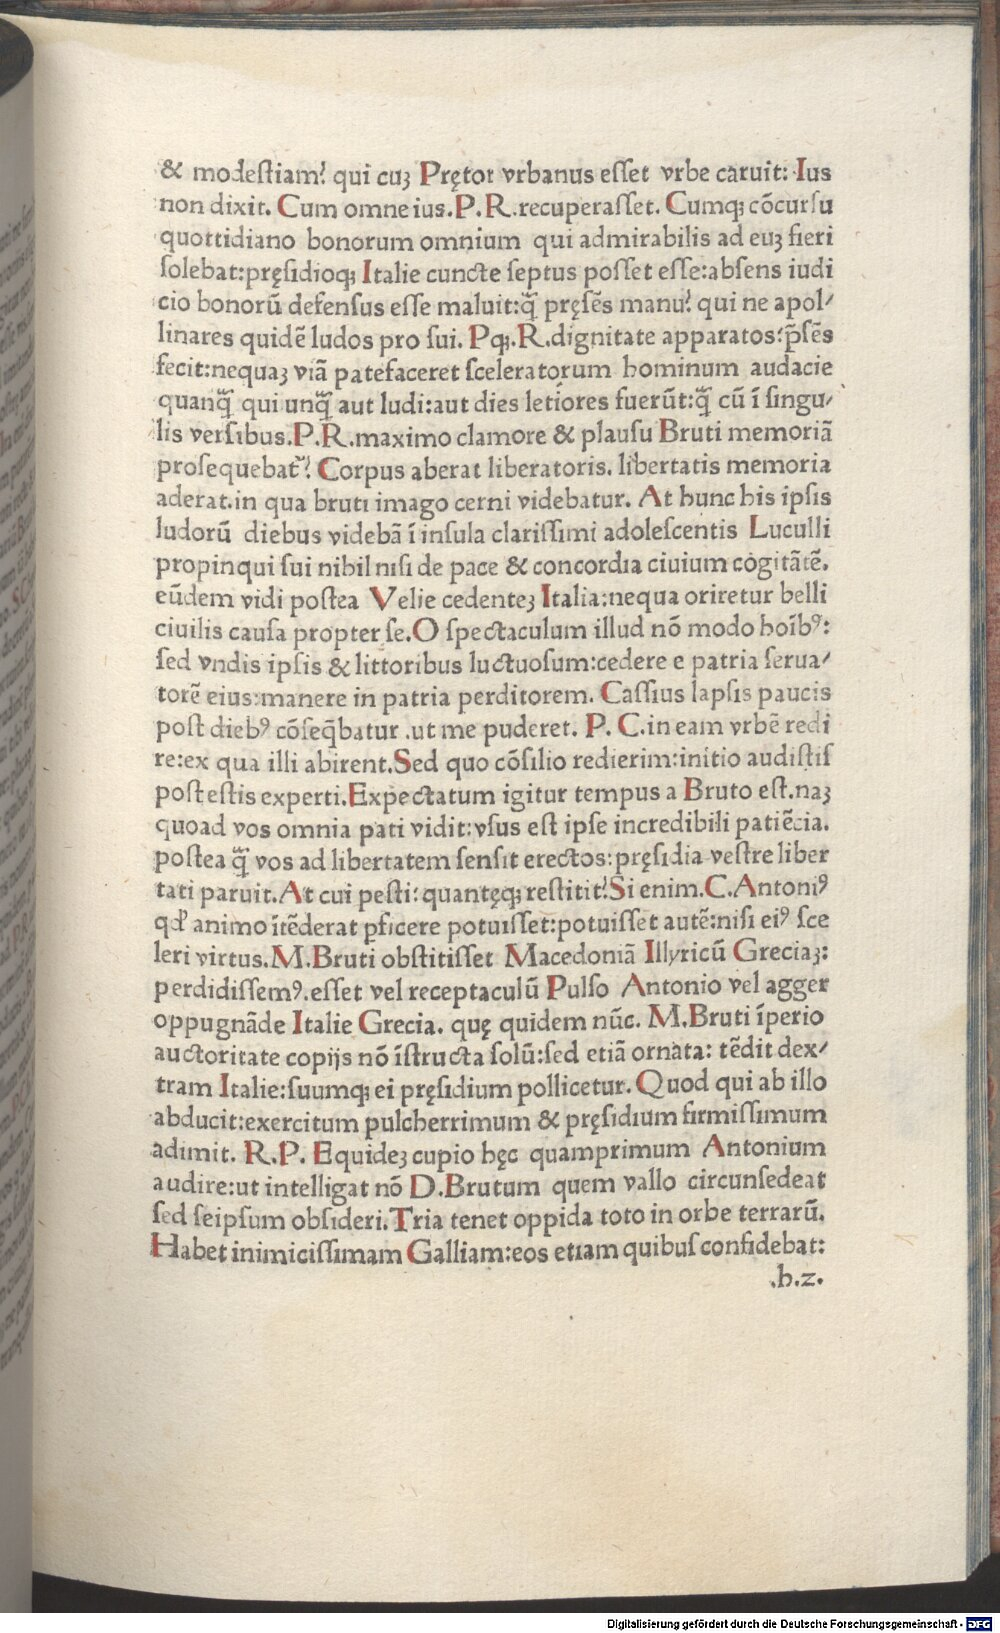 & modeſtiam? qui cuꝫ Prętor vrbanus eſſet vrbe caruit: Ius
non dixit. Cum omne ius.P.R.recuperaſſet. Cumqꝫ cõcurſu
quottidiano bonorum omnium qui admirabilis ad euꝫ fieri
ſolebat:pręſidioqꝫ Italie cuncte ſeptus poſſet eſſe:abſens iudi
cio bonorũ defenſus eſſe maluit:q̃ pręſẽs manu? qui ne apol⸗
linares quidẽ ludos pro ſui. Pqꝫ.R.dignitate apparatos:p̃ſẽs
fecit:nequaꝫ viã patefaceret ſceleratorum hominum audacie
quanq̃ qui unq̃ aut ludi:aut dies letiores fuerũt:q̃ cũ ĩ ſingu⸗
lis verſibus.P.R.maximo clamore & plauſu Bruti memoriã
proſequebat᷑? Corpus aberat liberatoris. libertatis memoria
aderat.in qua bruti imago cerni videbatur. At hunc his ipſis
ludorũ diebus videbã ĩ inſula clariſſimi adoleſcentis Luculli
propinqui ſui nihil niſi de pace & concordia ciuium cogitãtẽ.
eũdem vidi poſtea Velie cedenteꝫ Italia:nequa oriretur belli
ciuilis cauſa propter ſe.O ſpectaculum illud nõ modo hoĩbꝰ:
ſed vndis ipſis & littoribus luctuoſum:cedere e patria ſerua⸗
torẽ eius:manere in patria perditorem. Caſſius lapſis paucis
poſt diebꝰ cõſeq̃batur .ut me puderet. P. C.in eam vrbẽ redi
re:ex qua illi abirent.Sed quo cõſilio redierim:initio audiſtiſ
poſt eſtis experti.Expectatum igitur tempus a Bruto eſt.naꝫ
quoad vos omnia pati vidit:vſus eſt ipſe incredibili patiẽcia.
poſtea q̃ vos ad libertatem ſenſit erectos:pręſidia veſtre liber
tati paruit.At cui peſti: quantęqꝫ reſtitit?Si enim.C.Antoniꝰ
qď animo ĩtẽderat ꝑficere potuiſſet:potuiſſet autẽ:niſi eiꝰ ſce
leri virtus.M.Bruti obſtitiſſet Macedoniã Illyricũ Greciaꝫ:
perdidiſſemꝰ.eſſet vel receptaculũ Pulſo Antonio vel agger
oppugnãde Italie Grecia. quę quidem nũc. M.Bruti ĩperio
auctoritate copijs nõ ĩſtructa ſolũ:ſed etiã ornata: tẽdit dex⸗
tram Italie:ſuumqꝫ ei pręſidium pollicetur. Quod qui ab illo
abducit:exercitum pulcherrimum & pręſidium firmiſſimum
adimit. R.P. Equideꝫ cupio hęc quamprimum Antonium
audire:ut intelligat nõ D.Brutum quem vallo circunſedeat
ſed ſeipſum obſideri.Tria tenet oppida toto in orbe terrarũ.
Habet inimiciſſimam Galliam:eos etiam quibuſ confidebat:
.b.z.
Digitalisierung gefördert durch die Deutsche Forschungsgemeinschaft - DFG